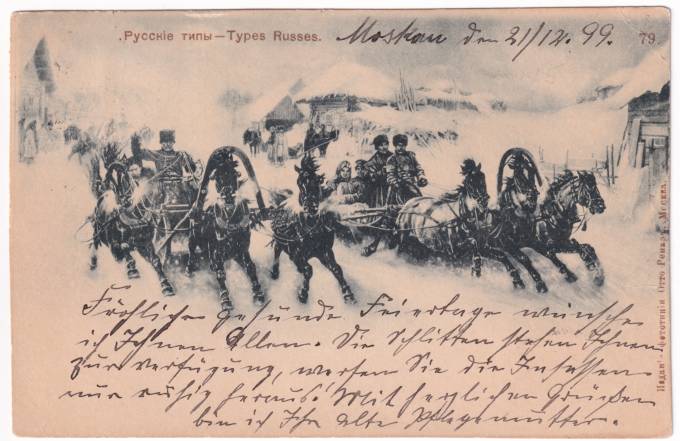 .Русскіе типы—Types Russes.
Moskau den 21/12. 99.
79
Fröhliche gesunde Feiertage wünsche
ich Ihnen Allen. Die Schlitten stehen Ihnen
zur verfügung, werfen Sie die Insassen
nur ruhig heraus! Mit herzlichen Grüßen
bin ich Ihre alte Pflegemutter.
фототипія Отто Ренаръ, Москва.